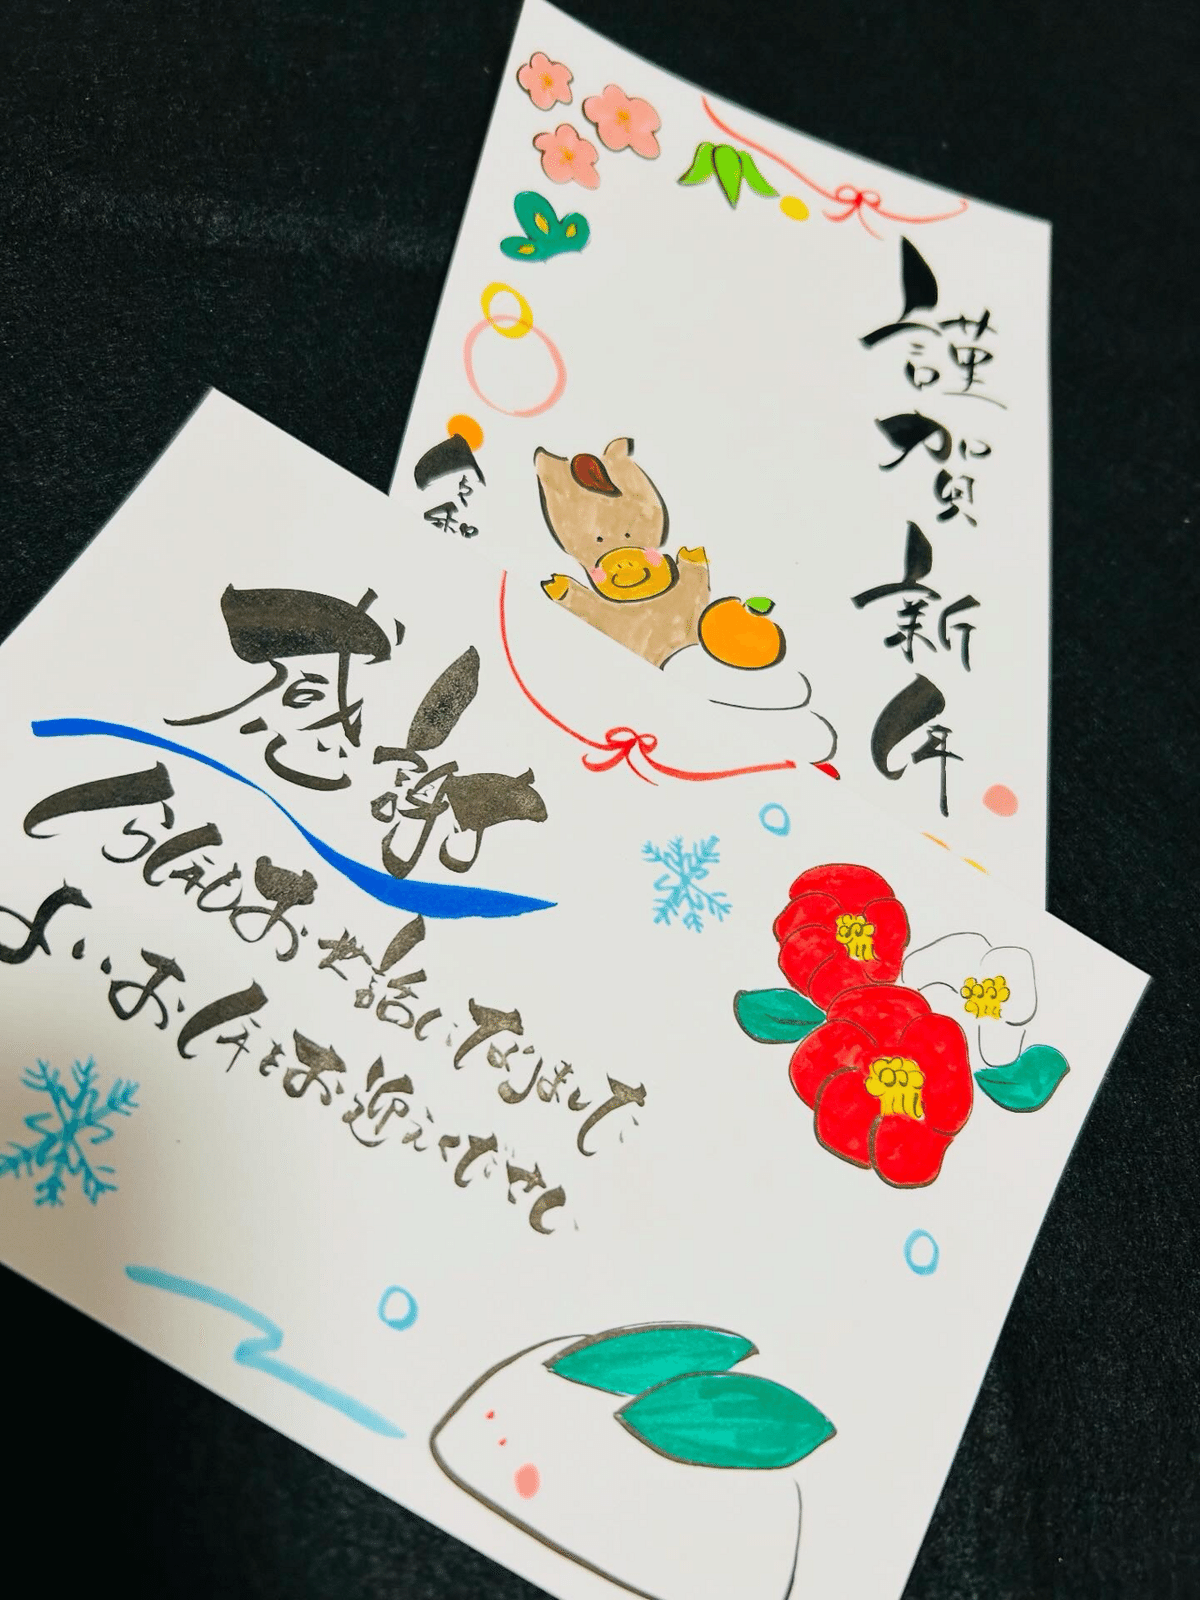 謹賀新年
令和
感謝
今年もお世話になりました
よいお年をお迎えください